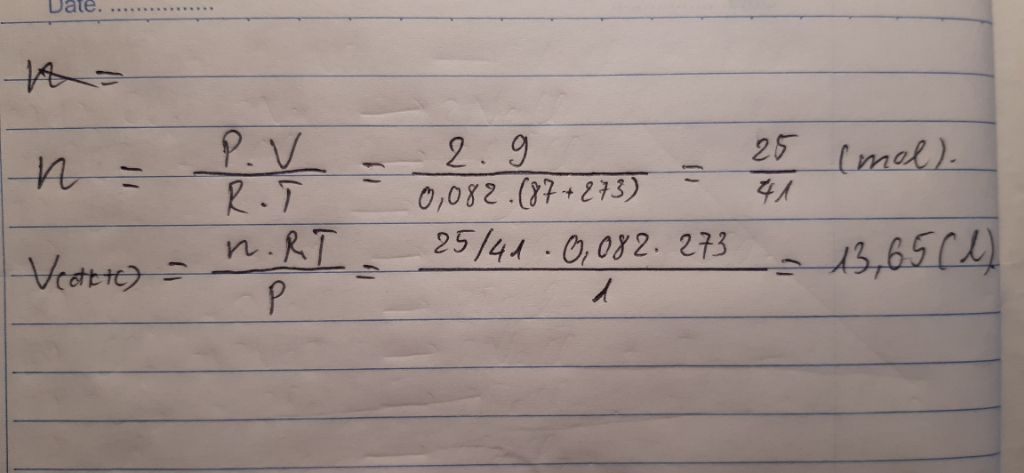 Date. ................
n =
n = P.V / R.T = 2.9 / 0,082.(87+273) = 25 / 41 (mol).
V(đktc) = n.RT / P = 25/41 . 0,082. 273 / 1 = 13,65(l)